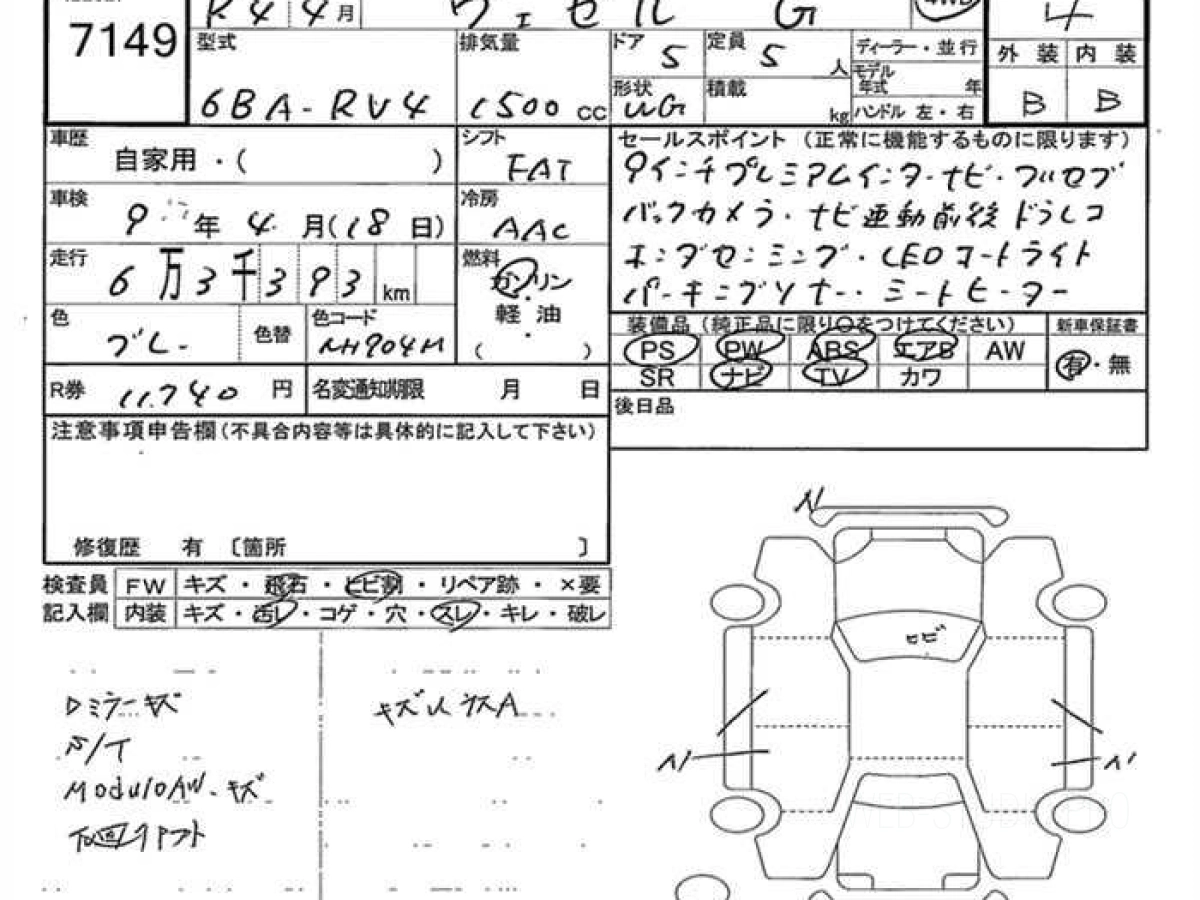 7149
R4 4月 ヴェゼル G 4WD
4
型式 6BA-RV4
排気量 1500 cc
ドア 5
定員 5 人
ディーラー・並行
形状 WG
積載 kg
モデル年式 年
ハンドル 左・右
外装 内装
B B
車歴 自家用・( )
シフト FAT
車検 9年 4月(18日)
冷房 AAC
走行 6万3千393 km
燃料 ガソリン・軽油 ( )
色 ブレー
色替
色コード NH904M
R券 11.740 円
名変通知期限 月 日
セールスポイント(正常に機能するものに限ります)
9インチプレミアムインターナビ・フルセブ
バックカメラ・ナビ連動前後ドラレコ
ホンダセンシング・LEDコートライト
パーキングソナー・シートヒーター
装備品(純正品に限り○をつけてください)
新車保証書
PS PW ABS エアB AW
SR ナビ TV カワ
有・無
後日品
注意事項申告欄(不具合内容等は具体的に記入して下さい)
修復歴 有 〔箇所 〕
検査員記入欄
FW キズ・飛石・ヒビ割・リペア跡・×要
内装 キズ・汚レ・コゲ・穴・スレ・キレ・破レ
Dミラーキズ
S/T
ModuloAW・キズ
下回リサフト
キズ
A